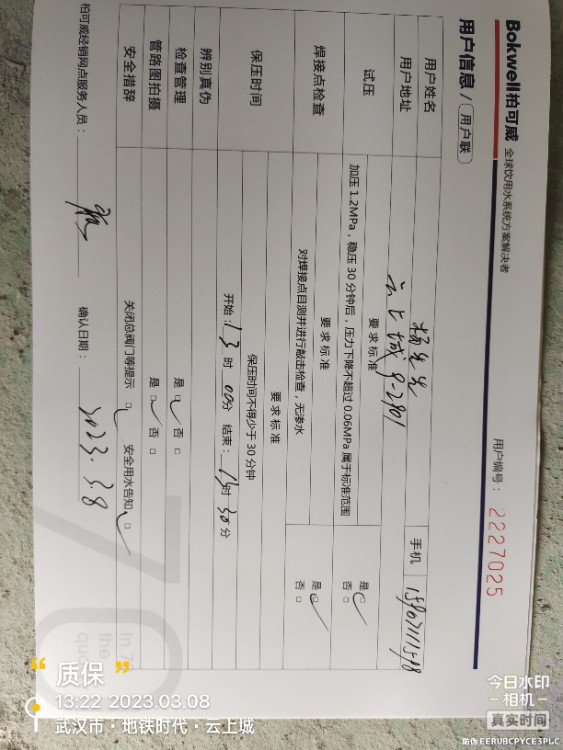 Bokwell柏可威 全球饮用水系统方案解决者
用户编号： 2227025
用户信息 / 用户联
用户姓名 杨先生 手机
用户地址 云上城 9-2901
试压 要求标准
加压 1.2MPa，稳压 30 分钟后，压力下降不超过 0.06MPa 属于标准范围 是□ 否□
焊接点检查 要求标准
对焊接点目测并进行敲击检查，无渗水 是□ 否□
保压时间 要求标准
保压时间不得少于 30 分钟
开始：13 时 00分 结束：13时 30分
辨别真伪
检查管理 是□ 否□
管路图拍摄 是□ 否□
安全措辞 关闭总阀门等提示 □ 安全用水告知 □
柏可威经销网点服务人员： 确认日期： 2023.3.8
In 7
the
qu
质保
13:22 2023.03.08
武汉市·地铁时代·云上城
今日水印
相机
真实时间
防伪 EERUBCPYCE3PLC